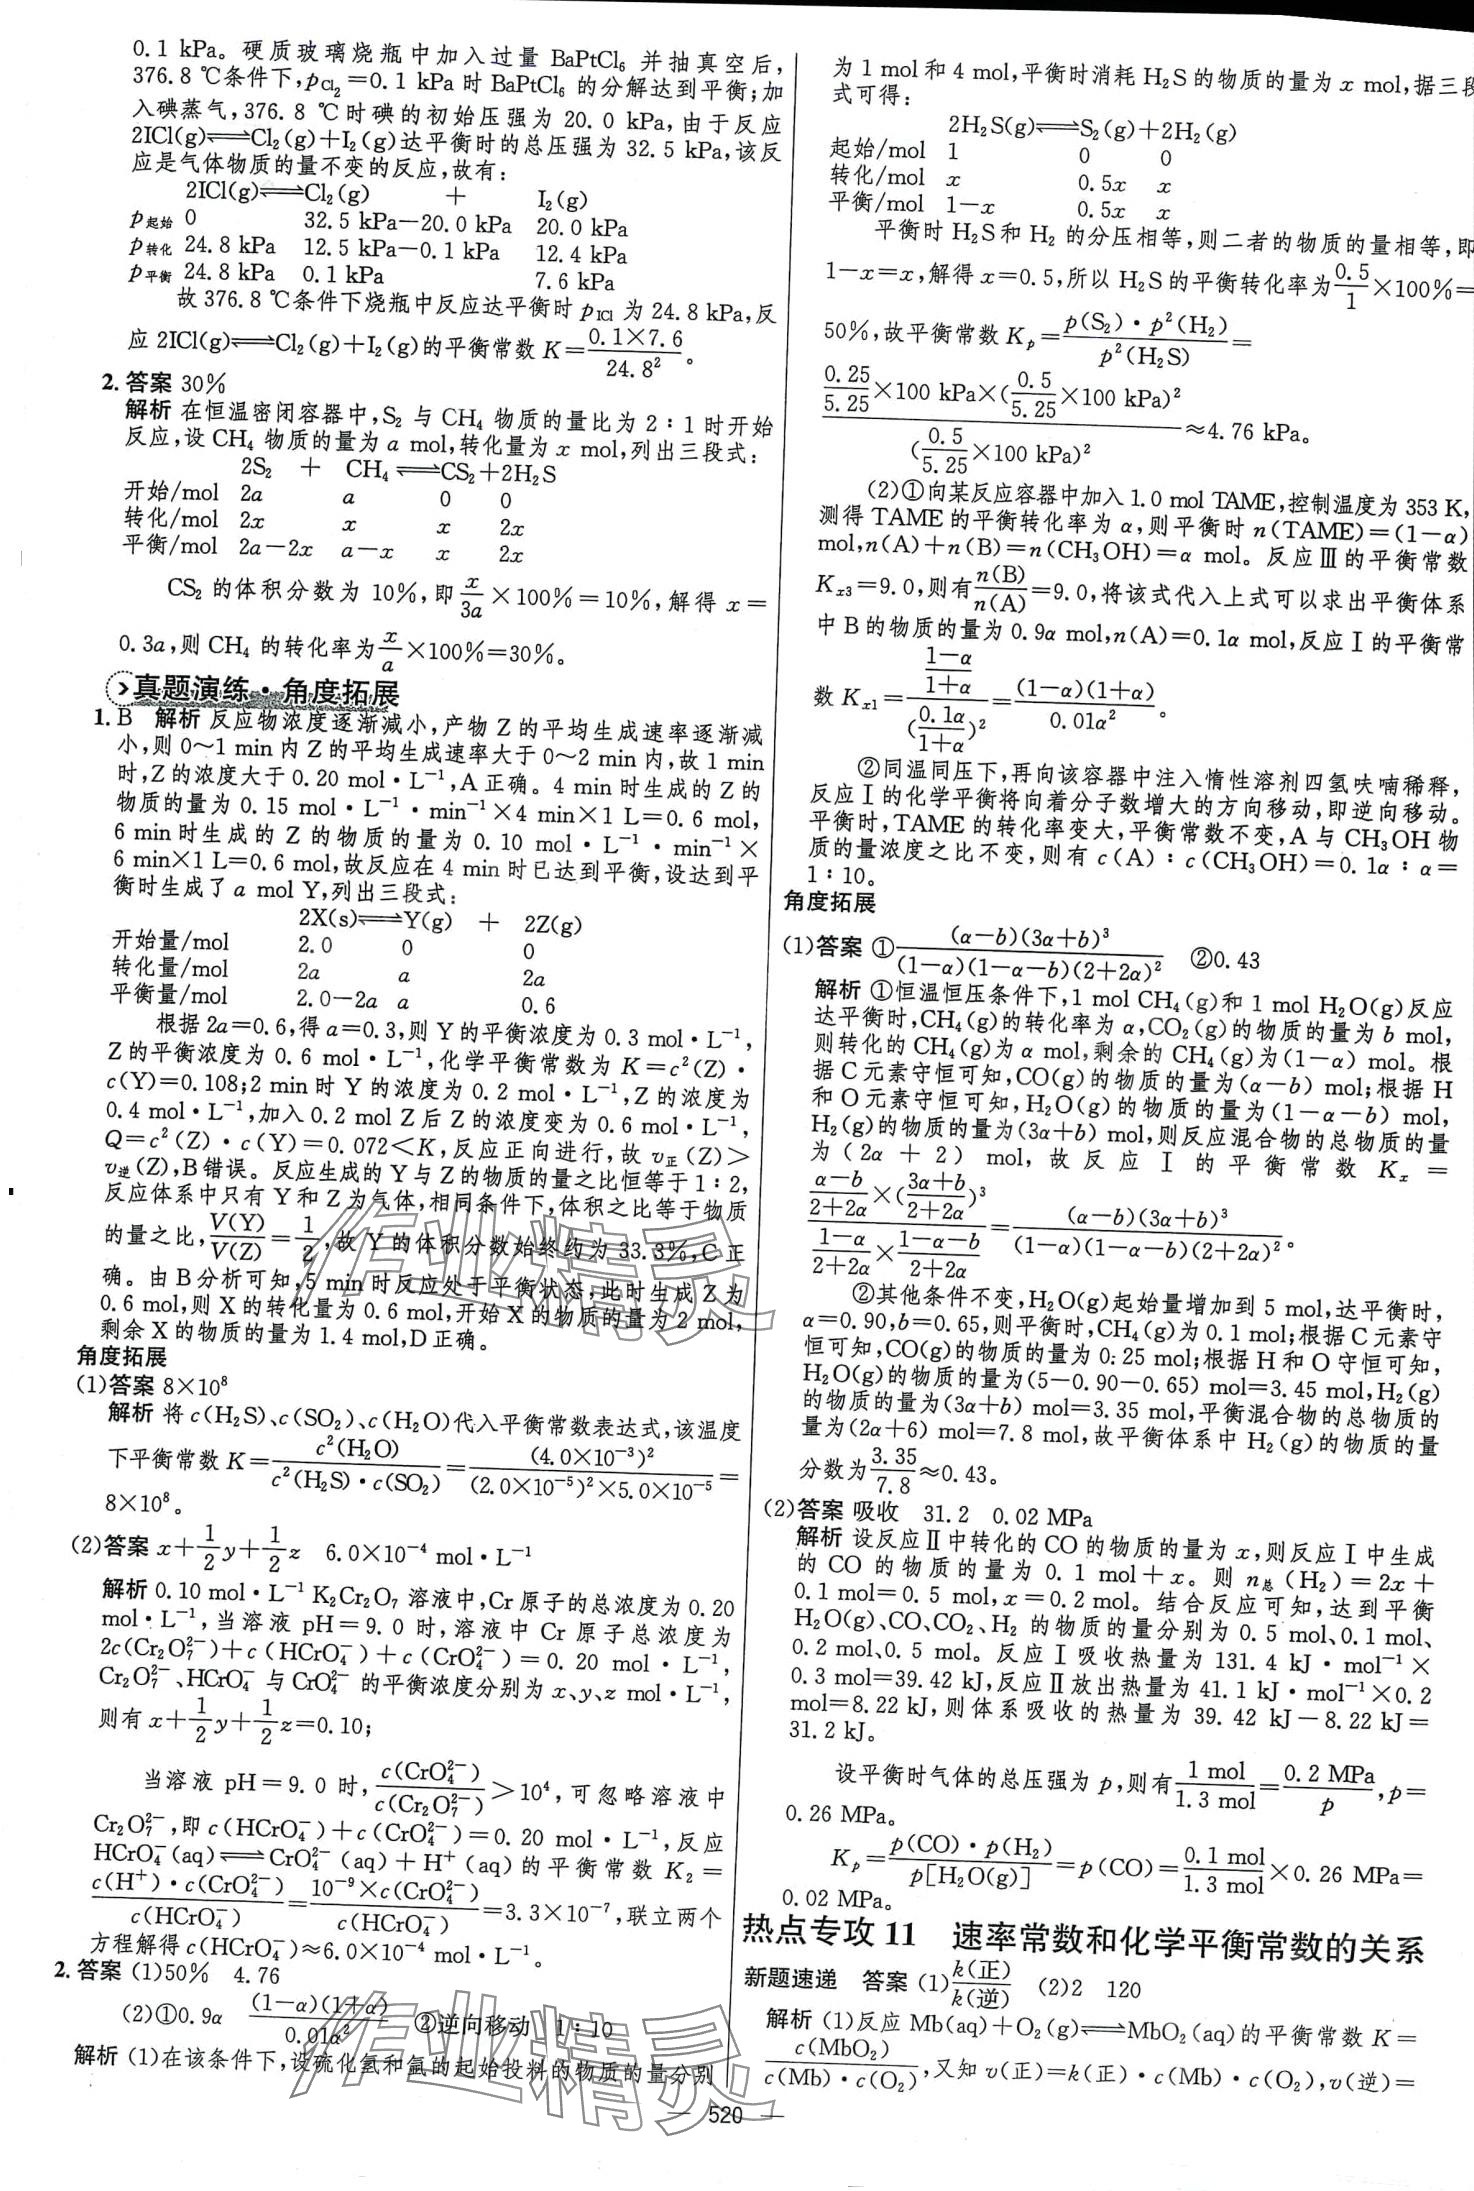 0.1 kPa。硬质玻璃烧瓶中加入过量 BaPtCl₆ 并抽真空后,
376.8 ℃条件下,p_Cl₂=0.1 kPa 时 BaPtCl₆ 的分解达到平衡;加
入碘蒸气,376.8 ℃时碘的初始压强为 20.0 kPa,由于反应
2ICl(g)⇌Cl₂(g)+I₂(g)达平衡时的总压强为 32.5 kPa,该反
应是气体物质的量不变的反应,故有:
2ICl(g)⇌Cl₂(g) + I₂(g)
p起始 0 32.5 kPa−20.0 kPa 20.0 kPa
p转化 24.8 kPa 12.5 kPa−0.1 kPa 12.4 kPa
p平衡 24.8 kPa 0.1 kPa 7.6 kPa
故 376.8 ℃条件下烧瓶中反应达平衡时 p_ICl 为 24.8 kPa,反
应 2ICl(g)⇌Cl₂(g)+I₂(g)的平衡常数 K=(0.1×7.6)/24.8²。
2.答案 30%
解析 在恒温密闭容器中,S₂ 与 CH₄ 物质的量比为 2∶1 时开始
反应,设 CH₄ 物质的量为 a mol,转化量为 x mol,列出三段式:
2S₂ + CH₄⇌CS₂+2H₂S
开始/mol 2a a 0 0
转化/mol 2x x x 2x
平衡/mol 2a−2x a−x x 2x
CS₂ 的体积分数为 10%,即 x/3a×100%=10%,解得 x=
0.3a,则 CH₄ 的转化率为 x/a×100%=30%。
真题演练·角度拓展
1.B 解析 反应物浓度逐渐减小,产物 Z 的平均生成速率逐渐减
小,则 0~1 min 内 Z 的平均生成速率大于 0~2 min 内,故 1 min
时,Z 的浓度大于 0.20 mol·L⁻¹,A 正确。4 min 时生成的 Z 的
物质的量为 0.15 mol·L⁻¹·min⁻¹×4 min×1 L=0.6 mol,
6 min 时生成的 Z 的物质的量为 0.10 mol·L⁻¹·min⁻¹×
6 min×1 L=0.6 mol,故反应在 4 min 时已达到平衡,设达到平
衡时生成了 a mol Y,列出三段式:
2X(s)⇌Y(g) + 2Z(g)
开始量/mol 2.0 0 0
转化量/mol 2a a 2a
平衡量/mol 2.0−2a a 0.6
根据 2a=0.6,得 a=0.3,则 Y 的平衡浓度为 0.3 mol·L⁻¹,
Z 的平衡浓度为 0.6 mol·L⁻¹,化学平衡常数为 K=c²(Z)·
c(Y)=0.108;2 min 时 Y 的浓度为 0.2 mol·L⁻¹,Z 的浓度为
0.4 mol·L⁻¹,加入 0.2 mol Z 后 Z 的浓度变为 0.6 mol·L⁻¹,
Q=c²(Z)·c(Y)=0.072<K,反应正向进行,故 v正(Z)>
v逆(Z),B 错误。反应生成的 Y 与 Z 的物质的量之比恒等于 1∶2,
反应体系中只有 Y 和 Z 为气体,相同条件下,体积之比等于物质
的量之比,V(Y)/V(Z)=1/2,故 Y 的体积分数始终约为 33.3%,C 正
确。由 B 分析可知,5 min 时反应处于平衡状态,此时生成 Z 为
0.6 mol,则 X 的转化量为 0.6 mol,开始 X 的物质的量为 2 mol,
剩余 X 的物质的量为 1.4 mol,D 正确。
角度拓展
(1)答案 8×10⁸
解析 将 c(H₂S)、c(SO₂)、c(H₂O)代入平衡常数表达式,该温度
下平衡常数 K=c²(H₂O)/[c²(H₂S)·c(SO₂)]=(4.0×10⁻³)²/[(2.0×10⁻⁵)²×5.0×10⁻⁵]=
8×10⁸。
(2)答案 x+1/2y+1/2z 6.0×10⁻⁴ mol·L⁻¹
解析 0.10 mol·L⁻¹ K₂Cr₂O₇ 溶液中,Cr 原子的总浓度为 0.20
mol·L⁻¹,当溶液 pH=9.0 时,溶液中 Cr 原子总浓度为
2c(Cr₂O₇²⁻)+c(HCrO₄⁻)+c(CrO₄²⁻)=0.20 mol·L⁻¹,
Cr₂O₇²⁻、HCrO₄⁻ 与 CrO₄²⁻ 的平衡浓度分别为 x、y、z mol·L⁻¹,
则有 x+1/2y+1/2z=0.10;
当溶液 pH=9.0 时,c(CrO₄²⁻)/c(Cr₂O₇²⁻)>10⁴,可忽略溶液中
Cr₂O₇²⁻,即 c(HCrO₄⁻)+c(CrO₄²⁻)=0.20 mol·L⁻¹,反应
HCrO₄⁻(aq)⇌CrO₄²⁻(aq)+H⁺(aq)的平衡常数 K₂=
c(H⁺)·c(CrO₄²⁻)/c(HCrO₄⁻)=10⁻⁹×c(CrO₄²⁻)/c(HCrO₄⁻)=3.3×10⁻⁷,联立两个
方程解得 c(HCrO₄⁻)≈6.0×10⁻⁴ mol·L⁻¹。
2.答案 (1)50% 4.76
(2)①0.9α (1−α)(1+α)/0.01α² ②逆向移动 1∶10
解析 (1)在该条件下,设硫化氢和氩的起始投料的物质的量分别
为 1 mol 和 4 mol,平衡时消耗 H₂S 的物质的量为 x mol,据三段
式可得:
2H₂S(g)⇌S₂(g)+2H₂(g)
起始/mol 1 0 0
转化/mol x 0.5x x
平衡/mol 1−x 0.5x x
平衡时 H₂S 和 H₂ 的分压相等,则二者的物质的量相等,即
1−x=x,解得 x=0.5,所以 H₂S 的平衡转化率为 0.5/1×100%=
50%,故平衡常数 Kp=p(S₂)·p²(H₂)/p²(H₂S)=
[0.25/5.25×100 kPa×(0.5/5.25×100 kPa)²]/(0.5/5.25×100 kPa)²≈4.76 kPa。
(2)①向某反应容器中加入 1.0 mol TAME,控制温度为 353 K,
测得 TAME 的平衡转化率为 α,则平衡时 n(TAME)=(1−α)
mol,n(A)+n(B)=n(CH₃OH)=α mol。反应Ⅲ的平衡常数
Kx3=9.0,则有 n(B)/n(A)=9.0,将该式代入上式可以求出平衡体系
中 B 的物质的量为 0.9α mol,n(A)=0.1α mol,反应Ⅰ的平衡常
数 Kx1=[(1−α)/(1+α)]/(0.1α/(1+α))²=(1−α)(1+α)/0.01α²。
②同温同压下,再向该容器中注入惰性溶剂四氢呋喃稀释,
反应Ⅰ的化学平衡将向着分子数增大的方向移动,即逆向移动。
平衡时,TAME 的转化率变大,平衡常数不变,A 与 CH₃OH 物
质的量浓度之比不变,则有 c(A)∶c(CH₃OH)=0.1α∶α=
1∶10。
角度拓展
(1)答案 ①(α−b)(3α+b)³/[(1−α)(1−α−b)(2+2α)²] ②0.43
解析 ①恒温恒压条件下,1 mol CH₄(g)和 1 mol H₂O(g)反应
达平衡时,CH₄(g)的转化率为 α,CO₂(g)的物质的量为 b mol,
则转化的 CH₄(g)为 α mol,剩余的 CH₄(g)为(1−α) mol。根
据 C 元素守恒可知,CO(g)的物质的量为(α−b) mol;根据 H
和 O 元素守恒可知,H₂O(g)的物质的量为(1−α−b) mol,
H₂(g)的物质的量为(3α+b) mol,则反应混合物的总物质的量
为(2α+2) mol,故反应Ⅰ的平衡常数 Kx=
[(α−b)/(2+2α)×((3α+b)/(2+2α))³]/[(1−α)/(2+2α)×(1−α−b)/(2+2α)]=(α−b)(3α+b)³/[(1−α)(1−α−b)(2+2α)²]。
②其他条件不变,H₂O(g)起始量增加到 5 mol,达平衡时,
α=0.90,b=0.65,则平衡时,CH₄(g)为 0.1 mol;根据 C 元素守
恒可知,CO(g)的物质的量为 0.25 mol;根据 H 和 O 守恒可知,
H₂O(g)的物质的量为(5−0.90−0.65) mol=3.45 mol,H₂(g)
的物质的量为(3α+b) mol=3.35 mol,平衡混合物的总物质的
量为(2α+6) mol=7.8 mol,故平衡体系中 H₂(g)的物质的量
分数为 3.35/7.8≈0.43。
(2)答案 吸收 31.2 0.02 MPa
解析 设反应Ⅱ中转化的 CO 的物质的量为 x,则反应Ⅰ中生成
的 CO 的物质的量为 0.1 mol+x。则 n总(H₂)=2x+
0.1 mol=0.5 mol,x=0.2 mol。结合反应可知,达到平衡
H₂O(g)、CO、CO₂、H₂ 的物质的量分别为 0.5 mol、0.1 mol、
0.2 mol、0.5 mol。反应Ⅰ吸收热量为 131.4 kJ·mol⁻¹×
0.3 mol=39.42 kJ,反应Ⅱ放出热量为 41.1 kJ·mol⁻¹×0.2
mol=8.22 kJ,则体系吸收的热量为 39.42 kJ−8.22 kJ=
31.2 kJ。
设平衡时气体的总压强为 p,则有 1 mol/1.3 mol=0.2 MPa/p,p=
0.26 MPa。
Kp=p(CO)·p(H₂)/p[H₂O(g)]=p(CO)=0.1 mol/1.3 mol×0.26 MPa=
0.02 MPa。
热点专攻 11 速率常数和化学平衡常数的关系
新题速递 答案 (1)k(正)/k(逆) (2)2 120
解析 (1)反应 Mb(aq)+O₂(g)⇌MbO₂(aq)的平衡常数 K=
c(MbO₂)/[c(Mb)·c(O₂)],又知 v(正)=k(正)·c(Mb)·c(O₂),v(逆)=
— 520 —
作业精灵
作业精灵